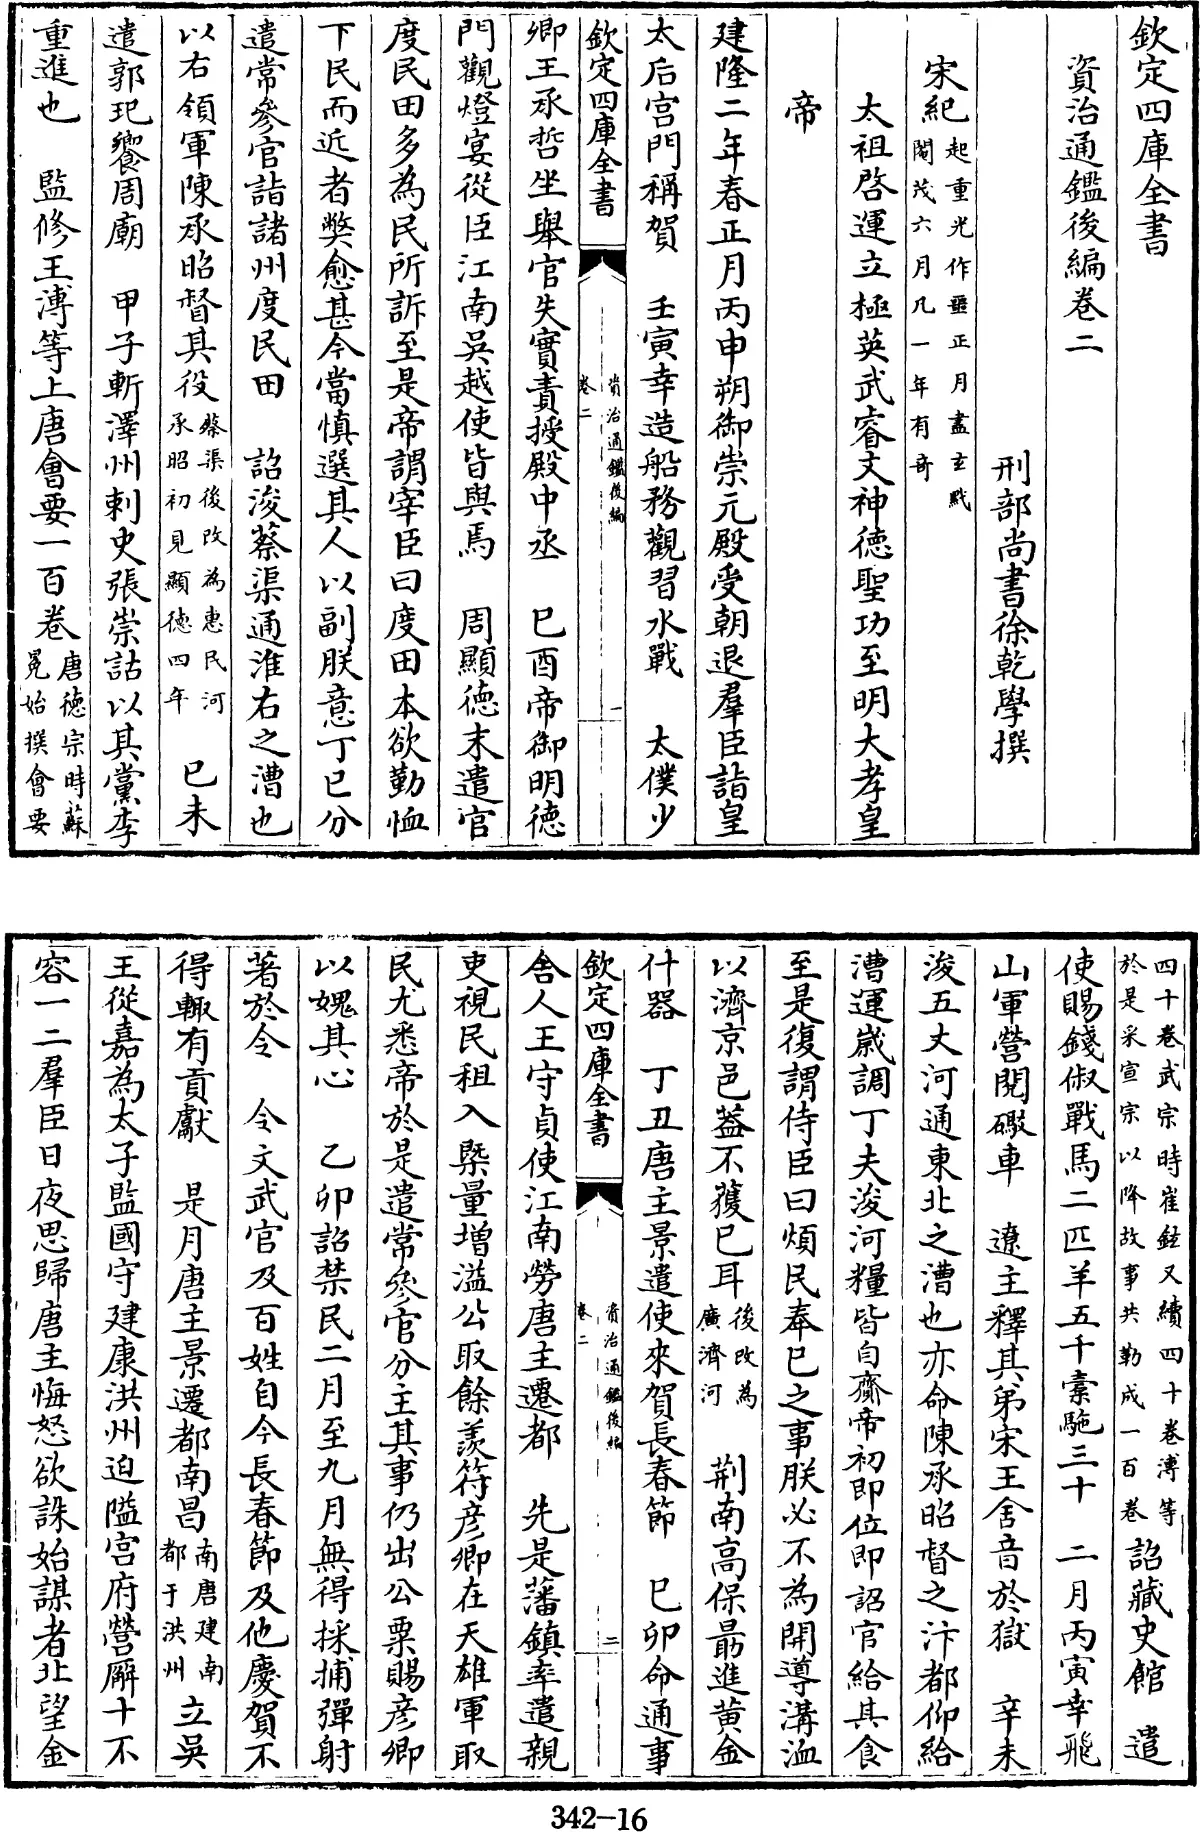 欽定四庫全書
資治通鑑後編卷二
刑部尚書徐乾學撰
宋紀起重光作噩正月盡玄黓
閹茂六月凡一年有奇
太祖啓運立極英武睿文神德聖功至明大孝皇
帝
建隆二年春正月丙申朔御崇元殿受朝退羣臣詣皇
太后宫門稱賀　壬寅幸造船務觀習水戰　太僕少
欽定四庫全書
資治通鑑後編
卷二
一
卿王承哲坐舉官失實責授殿中丞　巳酉帝御明德
門觀燈宴從臣江南吳越使皆與焉　周顯德末遣官
度民田多為民所訴至是帝謂宰臣曰度田本欲勤恤
下民而近者弊愈甚今當慎選其人以副朕意丁巳分
遣常參官詣諸州度民田　詔浚蔡渠通淮右之漕也
以右領軍陳承昭督其役蔡渠後改為惠民河
承昭初見顯德四年　巳未
遣郭玘饗周廟　甲子斬澤州刺史張崇詁以其黨李
重進也　監修王溥等上唐會要一百卷唐德宗時蘇
冕始撰會要
四十卷武宗時崔鉉又續四十卷溥等
於是采宣宗以降故事共勒成一百卷詔藏史館　遣
使賜錢俶戰馬二匹羊五千橐駞三十　二月丙寅幸飛
山軍營閱礮車　遼主釋其弟宋王舍音於獄　辛未
浚五丈河通東北之漕也亦命陳承昭督之汴都仰給
漕運歲調丁夫浚河糧皆自齎帝初即位即詔官給其食
至是復謂侍臣曰煩民奉巳之事朕必不為開導溝洫
以濟京邑葢不獲巳耳後改為
廣濟河　荆南高保勗進黄金
什器　丁丑唐主景遣使來賀長春節　巳卯命通事
欽定四庫全書
資治通鑑後編
卷二
二
舍人王守貞使江南勞唐主遷都　先是藩鎮率遣親
吏視民租入槩量增溢公取餘羨符彦卿在天雄軍取
民尤悉帝於是遣常參官分主其事仍出公粟賜彦卿
以媿其心　乙卯詔禁民二月至九月無得採捕彈射
著於令　令文武官及百姓自今長春節及他慶賀不
得輙有貢獻　是月唐主景遷都南昌南唐建南
都于洪州立吳
王從嘉為太子監國守建康洪州迫隘宫府營廨十不
容一二羣臣日夜思歸唐主悔怒欲誅始謀者北望金
342-16